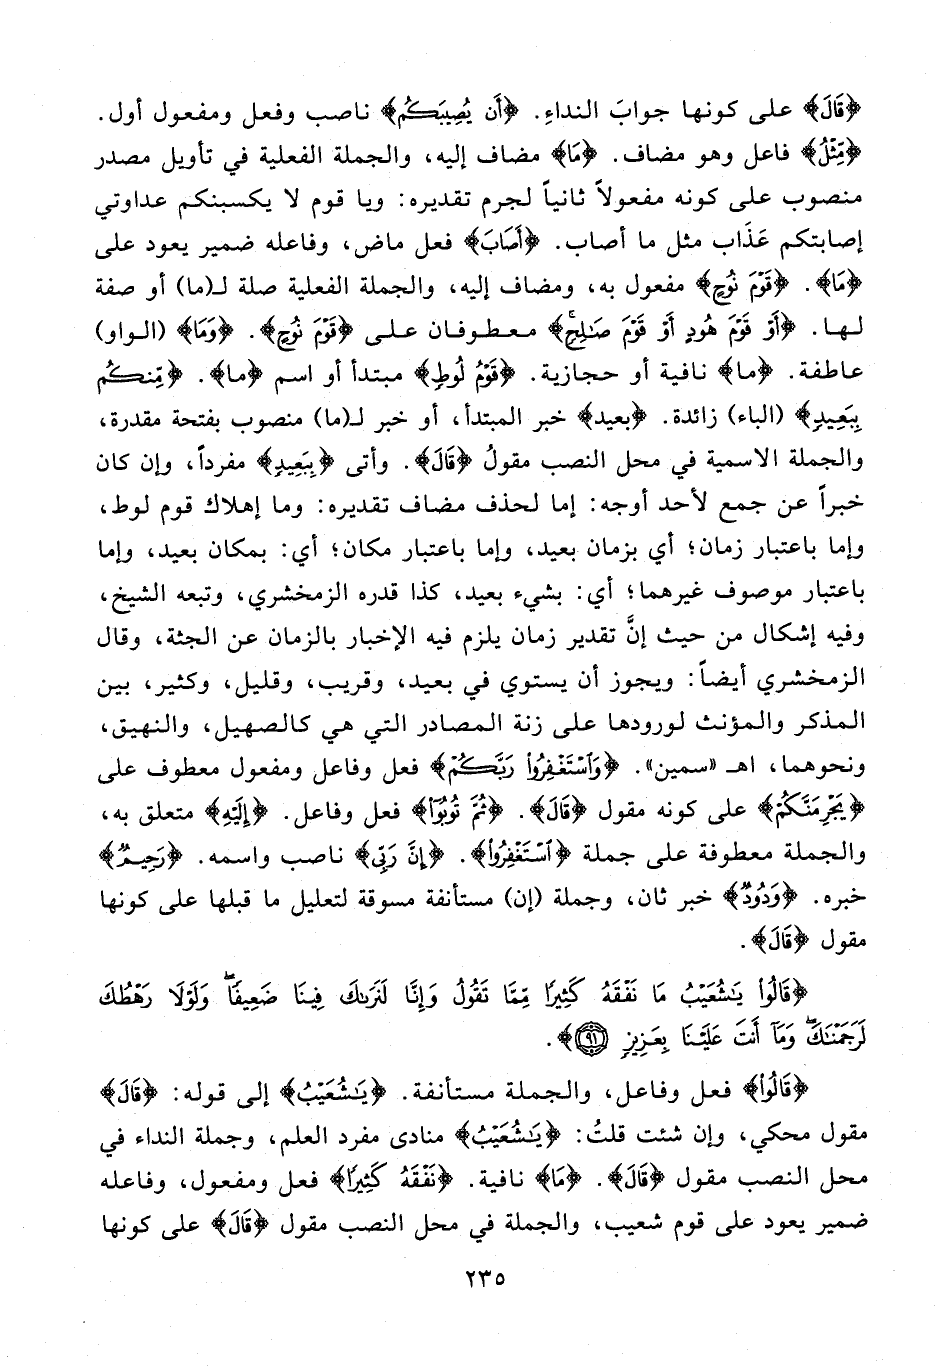 ﴿قَالَ﴾ على كونها جوابَ النداءِ. ﴿أَن يُصِيبَكُم﴾ ناصب وفعل ومفعول أول.
﴿مِّثْلُ﴾ فاعل وهو مضاف. ﴿مَا﴾ مضاف إليه، والجملة الفعلية في تأويل مصدر
منصوب على كونه مفعولاً ثانياً لجرم تقديره: ويا قوم لا يكسبنكم عداوتي
إصابتكم عَذَاب مثل ما أصاب. ﴿أَصَابَ﴾ فعل ماض، وفاعله ضمير يعود على
﴿مَا﴾. ﴿قَوْمَ نُوحٍ﴾ مفعول به، ومضاف إليه، والجملة الفعلية صلة لـ(ما) أو صفة
لها. ﴿أَوْ قَوْمَ هُودٍ أَوْ قَوْمَ صَٰلِحٍۚ﴾ معطوفان على ﴿قَوْمَ نُوحٍ﴾. ﴿وَمَا﴾ (الواو)
عاطفة. ﴿ما﴾ نافية أو حجازية. ﴿قَوْمُ لُوطٍ﴾ مبتدأ أو اسم ﴿ما﴾. ﴿مِّنكُم
بِبَعِيدٍ﴾ (الباء) زائدة. ﴿بعيد﴾ خبر المبتدأ، أو خبر لـ(ما) منصوب بفتحة مقدرة،
والجملة الاسمية في محل النصب مقولُ ﴿قَالَ﴾. وأتى ﴿بِبَعِيدٍ﴾ مفرداً، وإن كان
خبراً عن جمع لأحد أوجه: إما لحذف مضاف تقديره: وما إهلاك قوم لوط،
وإما باعتبار زمان؛ أي بزمان بعيد، وإما باعتبار مكان؛ أي: بمكان بعيد، وإما
باعتبار موصوف غيرهما؛ أي: بشيء بعيد، كذا قدره الزمخشري، وتبعه الشيخ،
وفيه إشكال من حيث إنَّ تقدير زمان يلزم فيه الإخبار بالزمان عن الجثة، وقال
الزمخشري أيضاً: ويجوز أن يستوي في بعيد، وقريب، وقليل، وكثير، بين
المذكر والمؤنث لورودها على زنة المصادر التي هي كالصهيل، والنهيق،
ونحوهما، اهـ «سمين». ﴿وَٱسْتَغْفِرُوا۟ رَبَّكُمْ﴾ فعل وفاعل ومفعول معطوف على
﴿يَجْرِمَنَّكُمْ﴾ على كونه مقول ﴿قَالَ﴾. ﴿ثُمَّ تُوبُوٓا۟﴾ فعل وفاعل. ﴿إِلَيْهِ﴾ متعلق به،
والجملة معطوفة على جملة ﴿ٱسْتَغْفِرُوا۟﴾. ﴿إِنَّ رَبِّى﴾ ناصب واسمه. ﴿رَحِيمٌ﴾
خبره. ﴿وَدُودٌ﴾ خبر ثان، وجملة (إن) مستأنفة مسوقة لتعليل ما قبلها على كونها
مقول ﴿قَالَ﴾.
﴿قَالُوا۟ يَٰشُعَيْبُ مَا نَفْقَهُ كَثِيرًا مِّمَّا تَقُولُ وَإِنَّا لَنَرَىٰكَ فِينَا ضَعِيفًاۖ وَلَوْلَا رَهْطُكَ
لَرَجَمْنَٰكَۖ وَمَآ أَنتَ عَلَيْنَا بِعَزِيزٍ ٩١﴾.
﴿قَالُوا۟﴾ فعل وفاعل، والجملة مستأنفة. ﴿يَٰشُعَيْبُ﴾ إلى قوله: ﴿قَالَ﴾
مقول محكي، وإن شئت قلتُ: ﴿يَٰشُعَيْبُ﴾ منادى مفرد العلم، وجملة النداء في
محل النصب مقول ﴿قَالَ﴾. ﴿مَا﴾ نافية. ﴿نَفْقَهُ كَثِيرًا﴾ فعل ومفعول، وفاعله
ضمير يعود على قوم شعيب، والجملة في محل النصب مقول ﴿قَالَ﴾ على كونها
٢٣٥